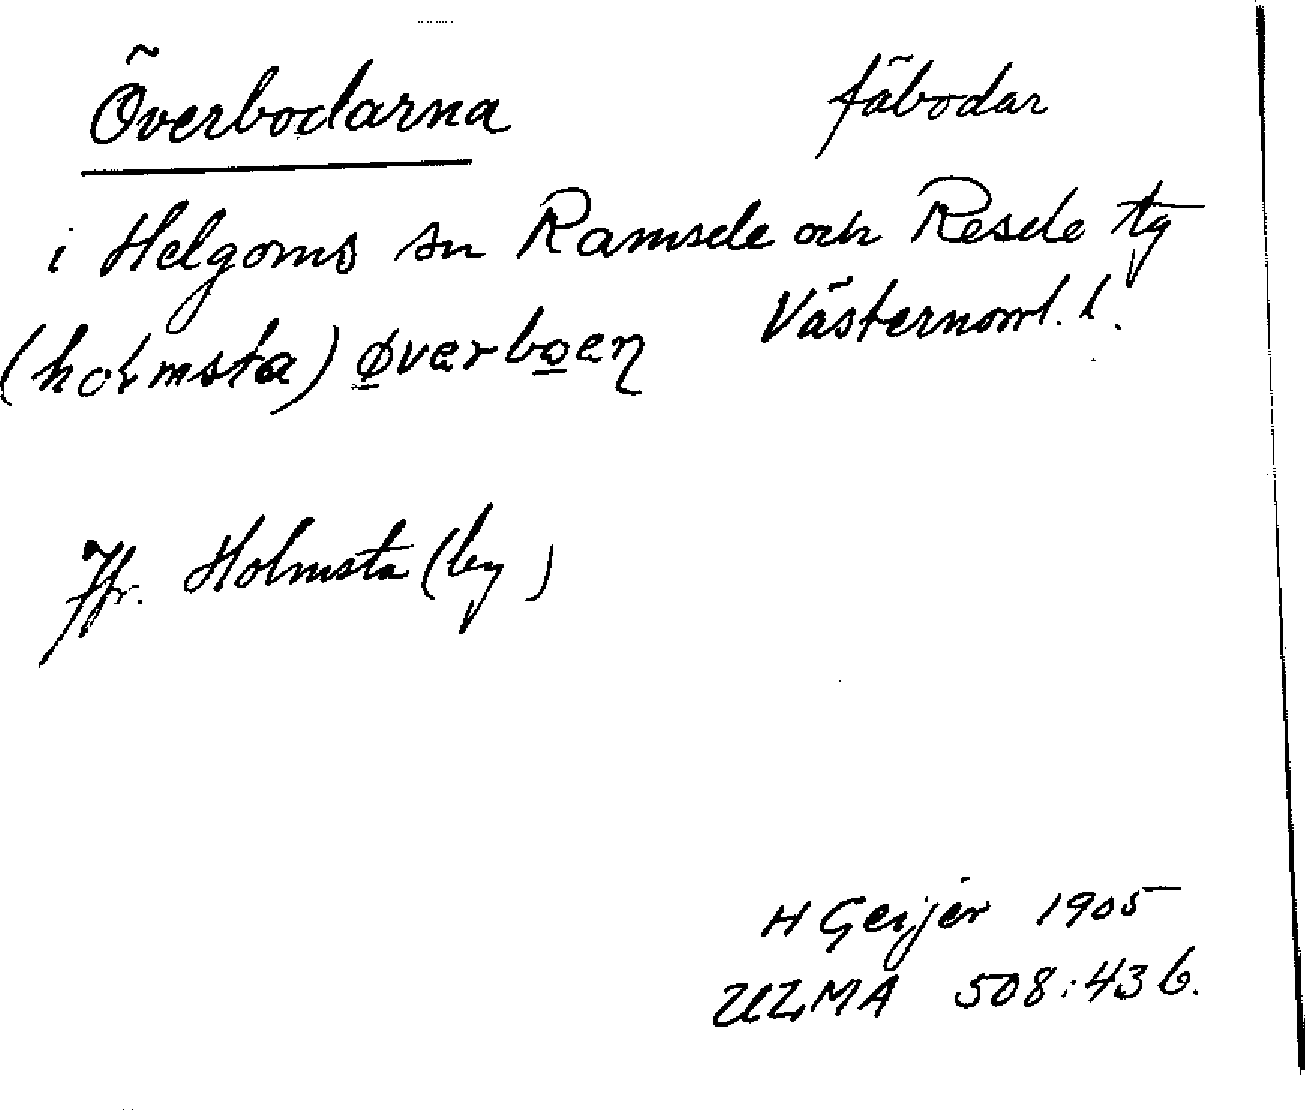 Överbodarna fäbodar
i Helgoms sn Ramsele och Resele tg
Västernorrl. l.
(holmsta) øverboen
Jfr. Holmsta (by)
H Geijer 1905
ULMA 508:43 b.